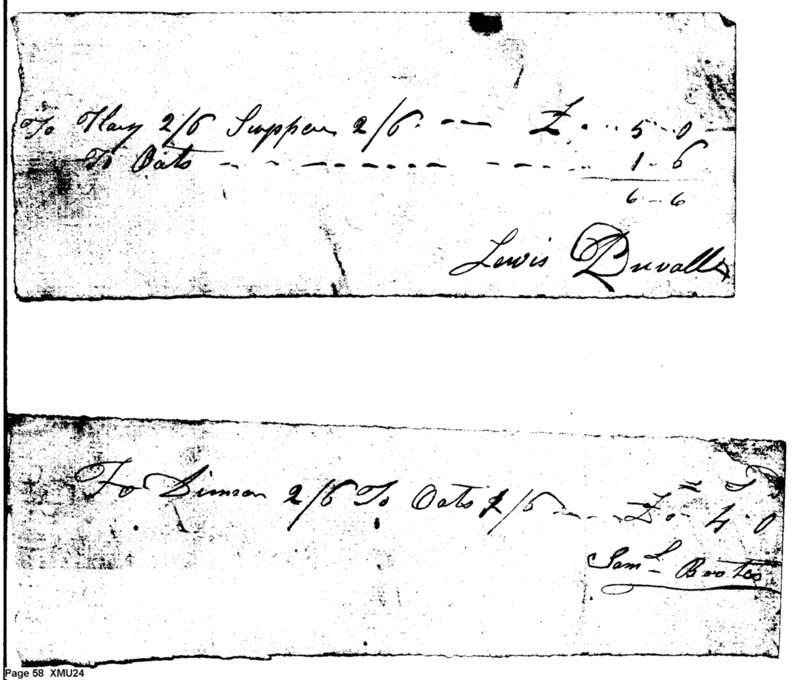 To Hay 2/6 Supper 2/6 — — £ . . 5 - 0
To Oats - - - - - - - - - - - 1 - 6
6 - 6
Lewis Duvall
To Dinner 2/6 To Oats 1/6 - - - £ 0 - 4 . 0
Saml Bootes
Page 58 XMU24